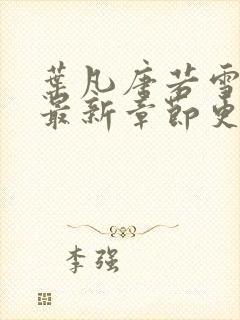 葉凡唐若雪
最新章節更
李强